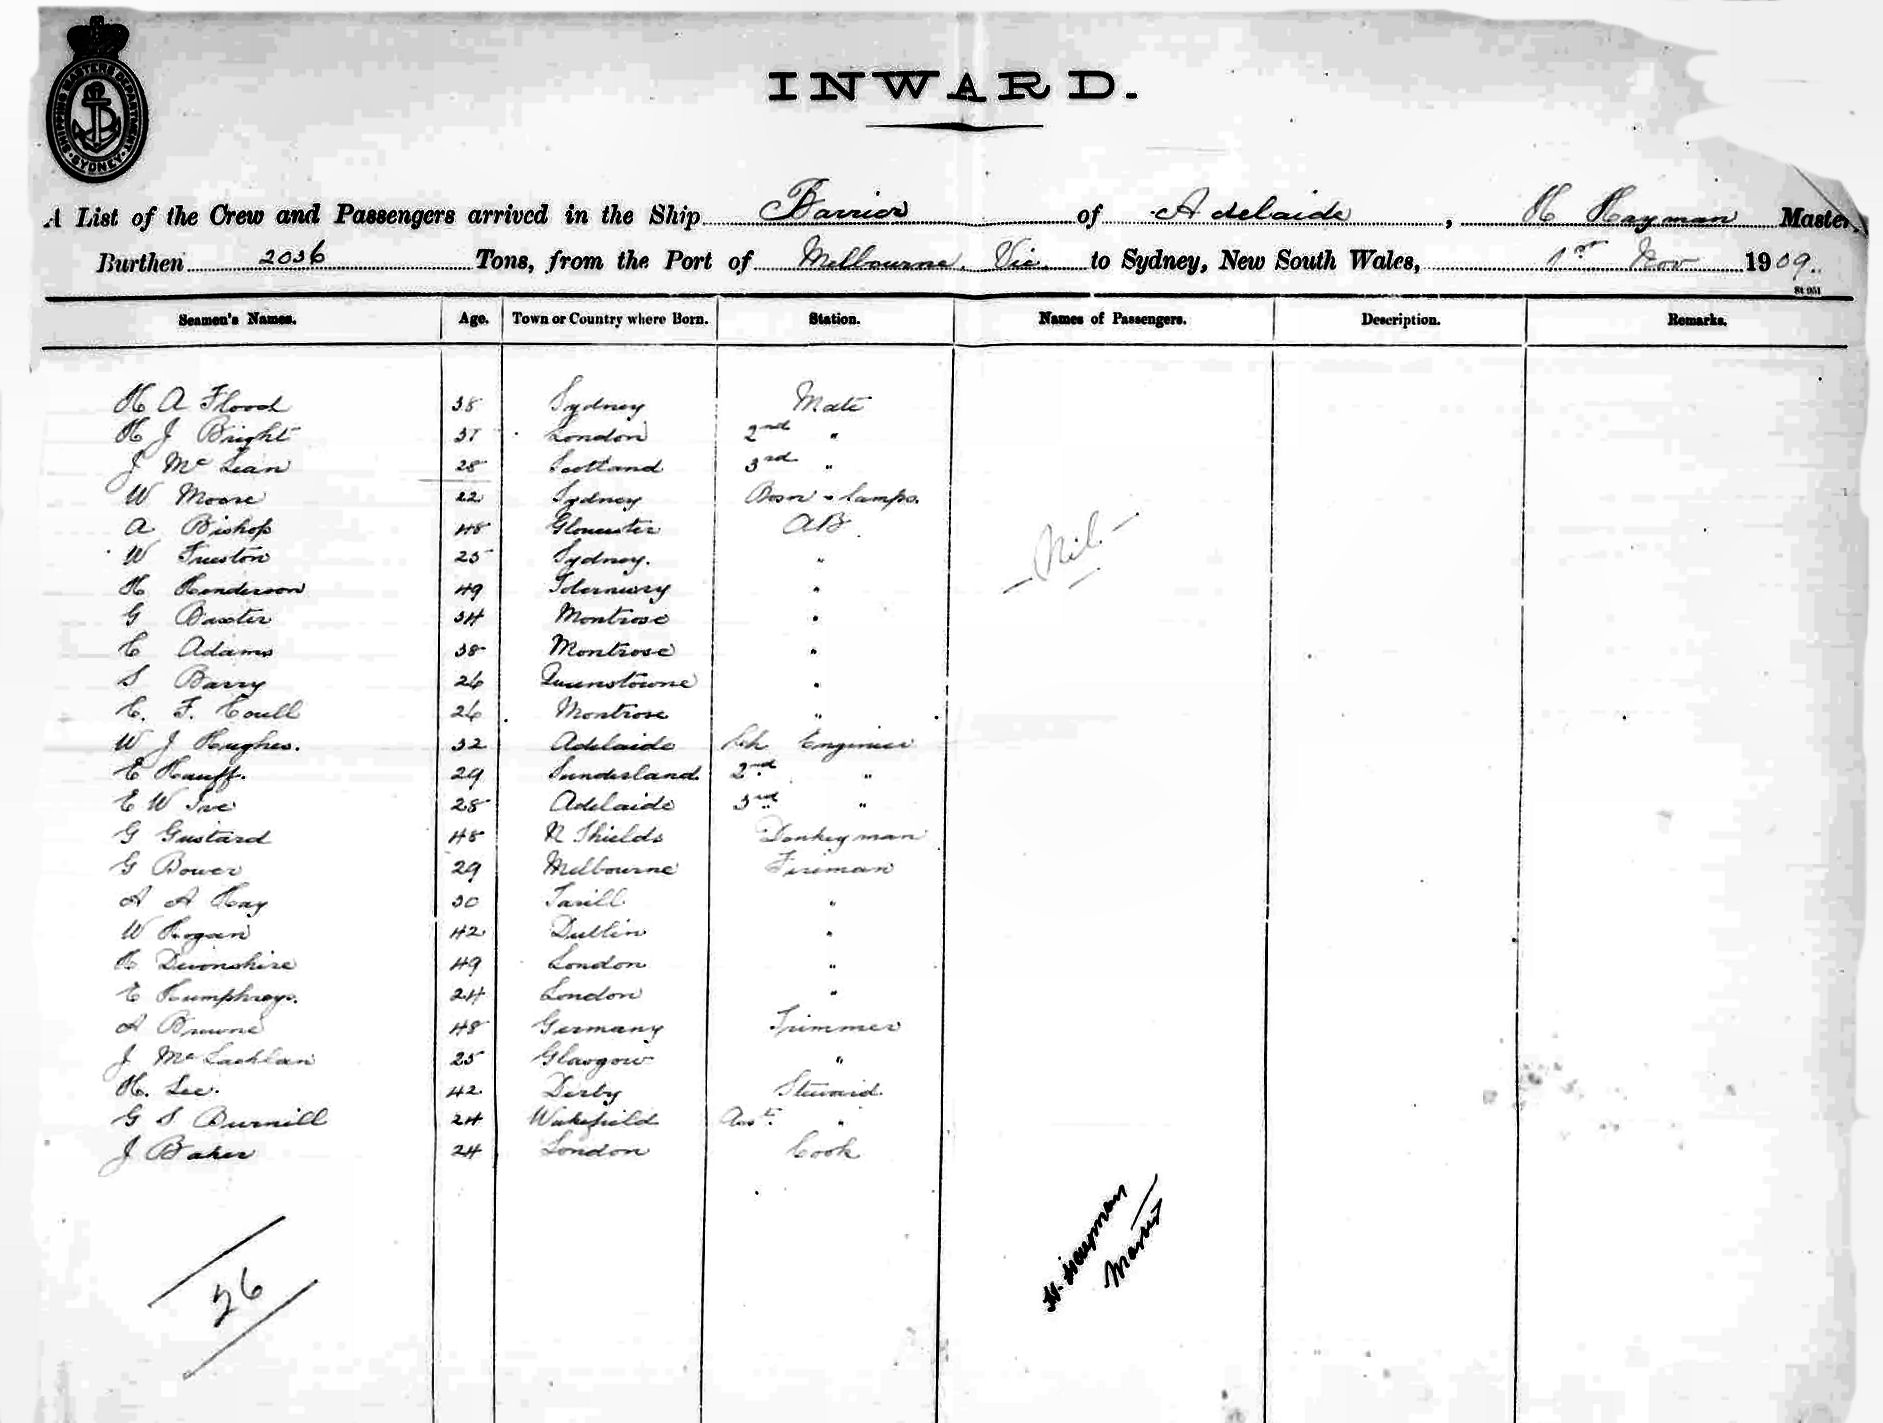 SHIPPING MASTERS DEPARTMENT SYDNEY
INWARD.
A List of the Crew and Passengers arrived in the Ship Barrier of Adelaide, H Hayman Master,
Burthen 2036 Tons, from the Port of Melbourne. Vic. to Sydney, New South Wales, 1st Nov 1909.
St 951
Seamen's Names. Age. Town or Country where Born. Station. Names of Passengers. Description. Remarks.
H A Flood 38 Sydney Mate
H J Bright 37 London 2nd "
J Mc Lean 28 Scotland 3rd "
W Moore 22 Sydney Bosn & Lamps.
A Bishop 48 Gloucester AB
W Freeston 25 Sydney. "
H Henderson 49 "
G Baxter 34 Montrose "
C Adams 38 Montrose "
S Barry 26 Queenstowne "
C. F. Coull 26 Montrose "
W J Hughes. 32 Adelaide Ch Engineer
E Hauff. 29 Sunderland 2nd "
E W Ive 28 Adelaide 3rd "
G Gustard 48 N Shields Donkeyman
G Bower 29 Melbourne Fireman
A A Hay 30 "
W Hogan 42 Dublin "
H Devonshire 49 London "
E Humphreys. 24 London "
A Browne 48 Germany Trimmer
J Mc Lachlan 25 Glasgow "
H. Lee. 42 Derby Steward
G S Burnill 24 Wakefield Asst. "
J Baker 24 London Cook
— Nil. —
26
H. Hayman
Master